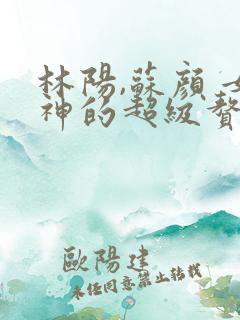 林陽,蘇顏
神的超級贅
歐陽建
未经同意禁止转载